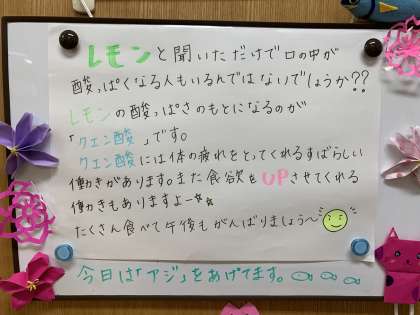 レモンと聞いただけで口の中が
酸っぱくなる人もいるんではないでしょうか??
レモンの酸っぱさのもとになるのが
「クエン酸」です。
クエン酸には体の疲れをとってくれるすばらしい
働きがあります。また食欲もUPさせてくれる
働きもありますよー☆☆
たくさん食べて午後もがんばりましょう〜
今日は「アジ」をあげてます。